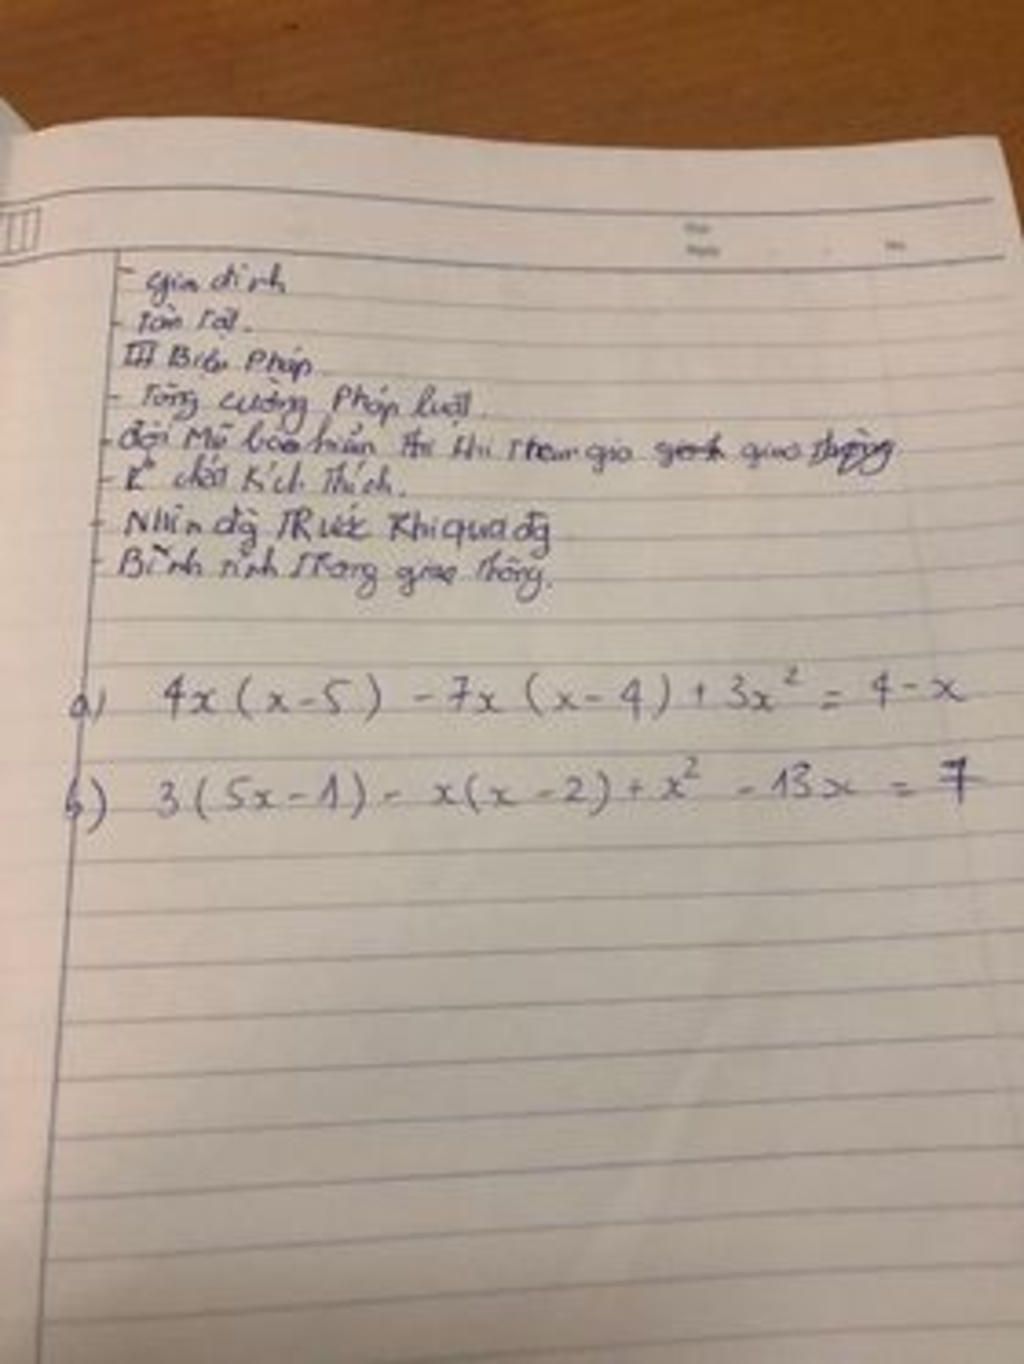 - gia đình
- Tàn Tật.
III Biện Pháp
- Tăng cường Pháp luật.
- đội Mũ bảo hiểm Khi Tham gia giao thông
- K° chất Kích Thích.
- Nhìn đg TRước Khi qua đg
- Bình tĩnh Trong giao thông.
a) 4x(x-5) - 7x(x-4) + 3x² = 4 - x
b) 3(5x-1) - x(x-2) + x² - 13x = 7